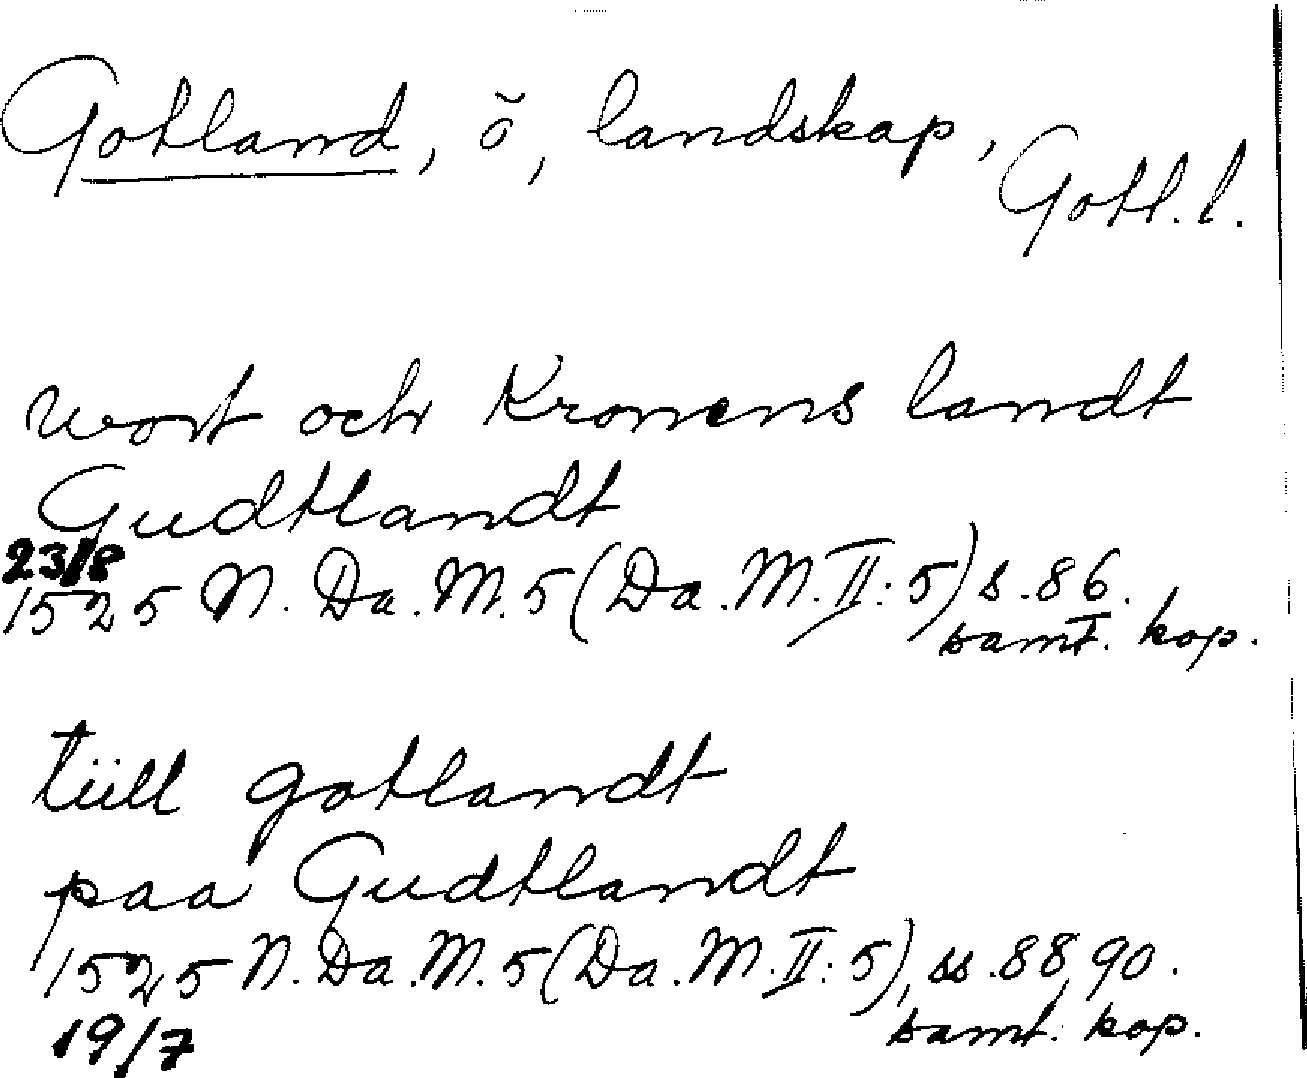 Gotland, ö, landskap,
Gotl. l.
wort och Kronens landt
Gudtlandt
23/8
1525 N. Da. M. 5 (Da. M. II: 5) s. 86.
samt. kop.
tüll gotlandt
paa Gudtlandt
1525 N. Da. M. 5 (Da. M. II: 5), ss. 88, 90.
19/7
samt. kop.